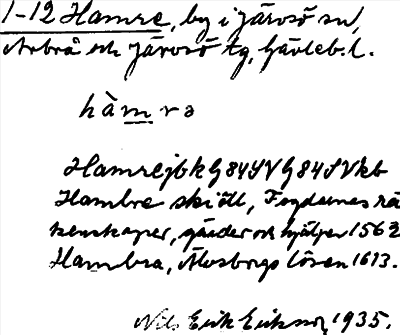 1-12 Hamre, by i Järvsö sn,
Arbrå och Järvsö tg, Gävleb. l.
hàmrə
Hamre jbk G 84 SV G 84 SVkb
Hambre skiöll, Fogdernes rä
kenskaper, gärder och hjälper 1562
Hambra, Älvsborgs lösen 1613.
Nils Erik Eriksson 1935.